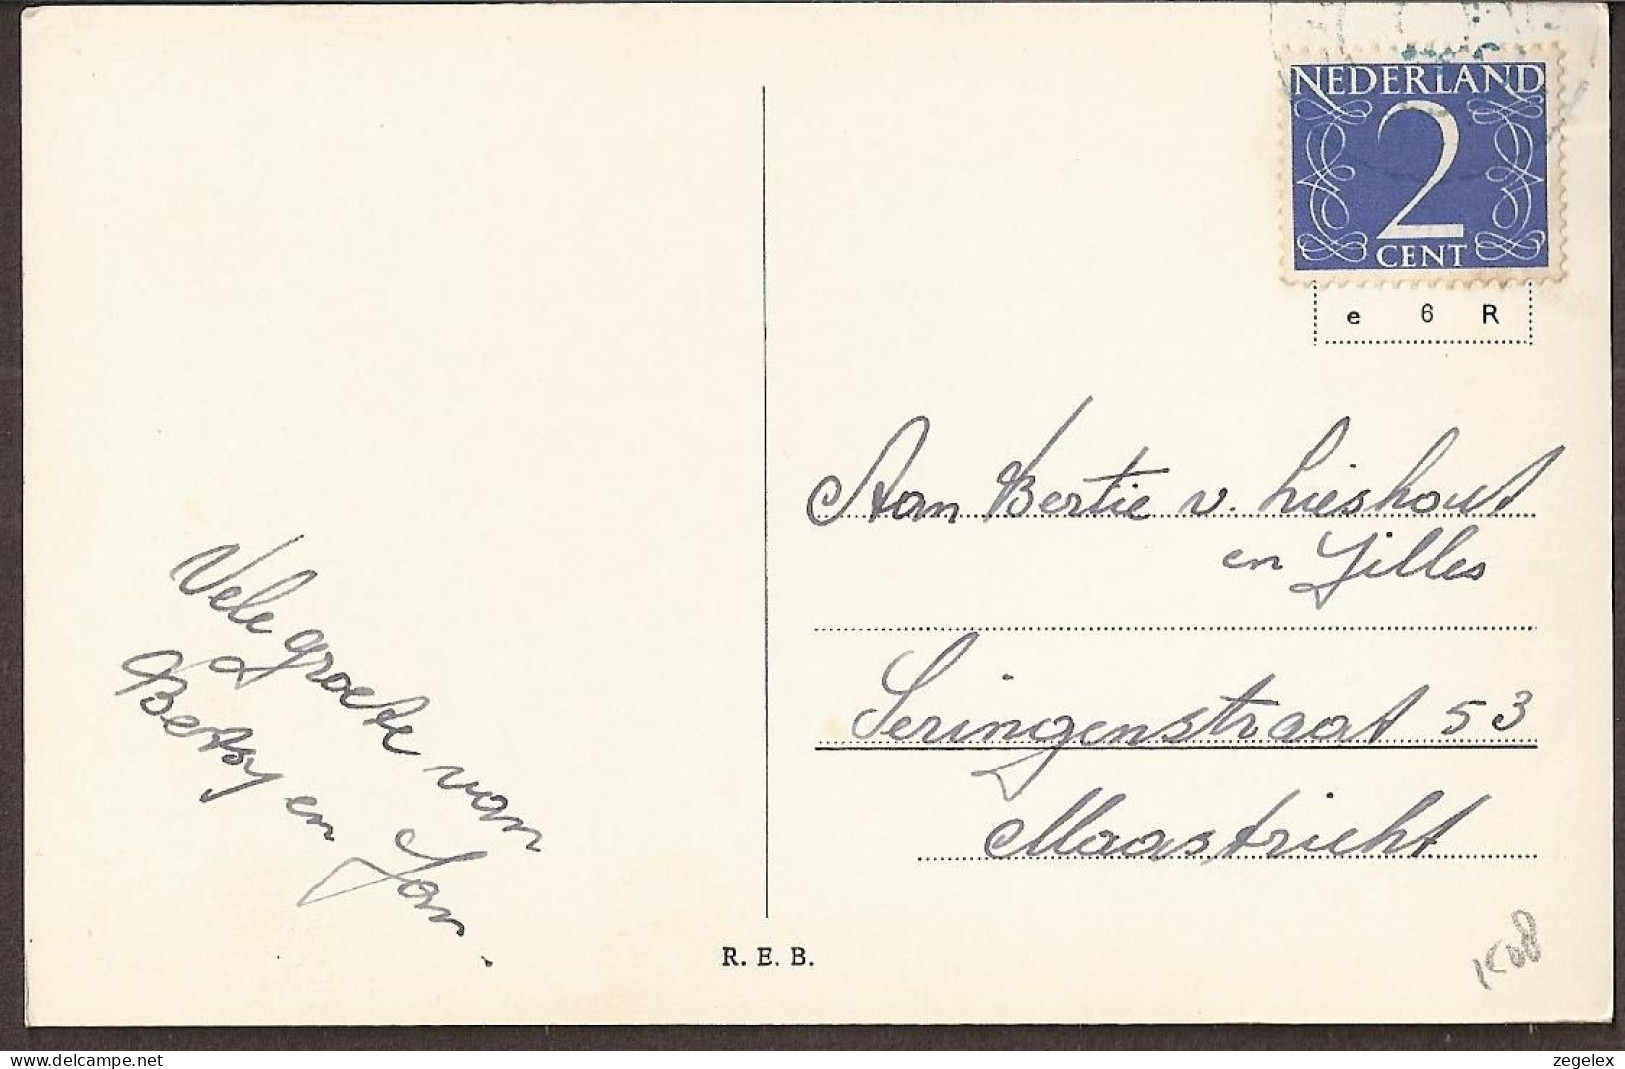 NEDERLAND
2
CENT
e 6 R
Aan Bertie v. Lieshout
en Jilles
Seringenstraat 53
Maastricht
Vele groete van
Betsy en Jan.
R. E. B.
delcampe.net
zegelex